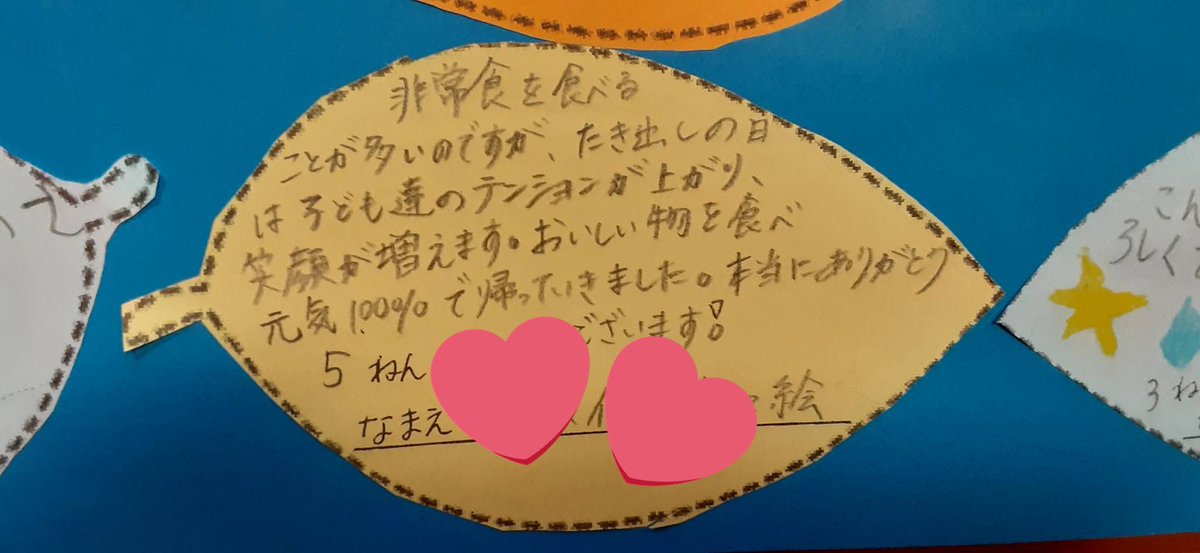 非常食を食べる
ことが多いのですが、たき出しの日
は子ども達のテンションが上がり、
笑顔が増えます。おいしい物を食べ
元気100%で帰っていきました。本当にありがとう
ございます!
5 ねん
なまえ 絵
こん
ろしく
3 ね